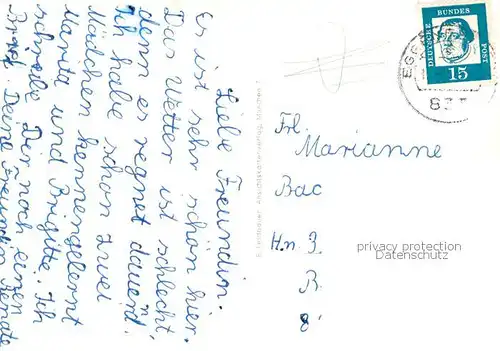 Liebe Freundin.
Es ist sehr schön hier.
Das Wetter ist schlecht,
denn es regnet dauernd.
Ich habe schon zwei
Mädchen kennengelernt
Marita und Brigitte. Ich
schreibe Dir noch einen
Brief. Deine Freundin Renate
DEUTSCHE BUNDESPOST
15
EGG
835
Frl
Marianne
Bac
H.n 3.
B.
8
privacy protection
Datenschutz